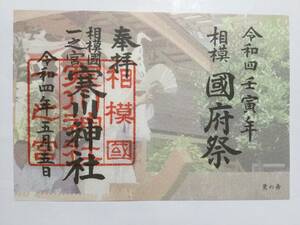 令和四壬寅年
相模
國府祭
奉拝
相模國
一之宮
寒川神社
令和四年五月五日
相模國